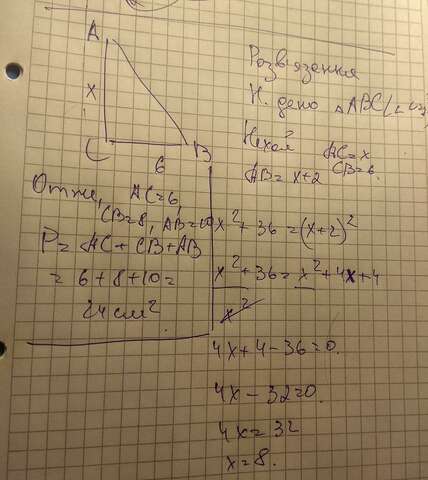 A
x
C
6
B
Розв'язення
Н. дено △ABC(∠
Нехай AC=x
AB=x+2 CB=6.
Отже, AC=6,
CB=8, AB=10
P=AC+CB+AB
=6+8+10=
24 см²
x²+36=(x+2)²
x²+36=x²+4x+4
x²
4x+4-36=0.
4x-32=0.
4x=32
x=8.